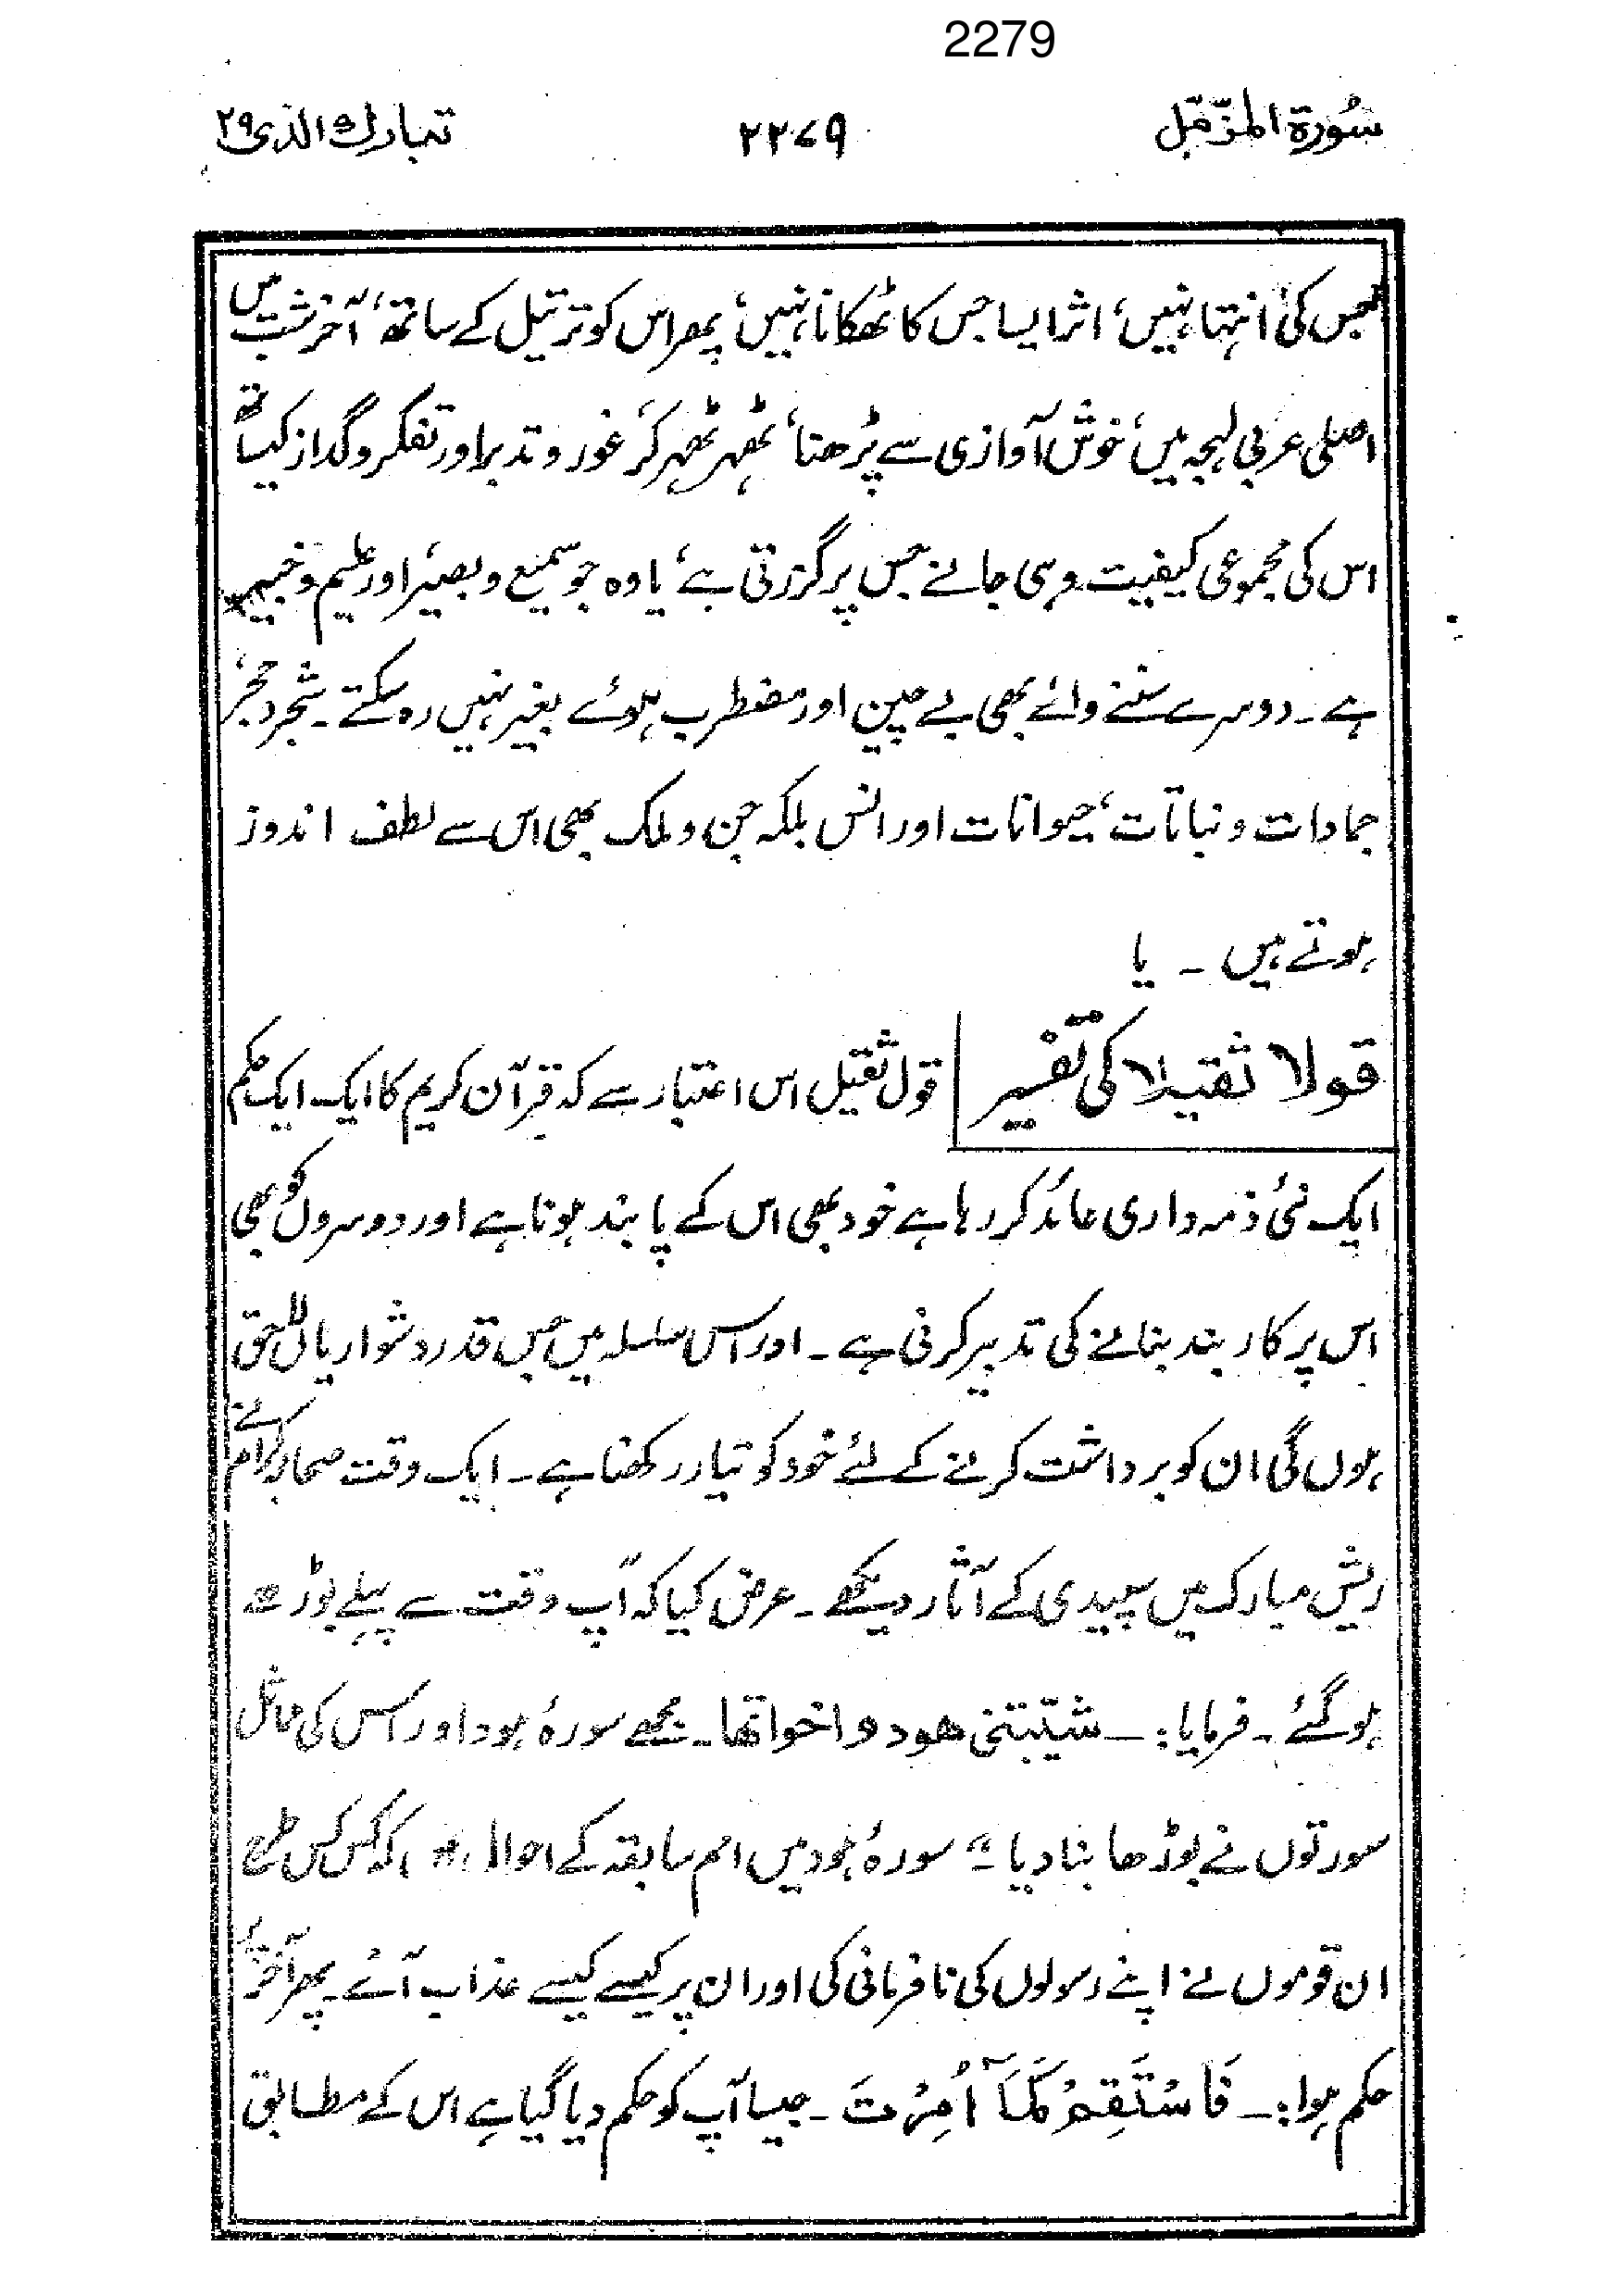 2279
سُورة المزّمّل ۲۲۷۹ تبارك الذی ۲۹
جس کی انتہا نہیں، اثر ایسا جس کا ٹھکانا نہیں، پھر اس کو ترتیل کے ساتھ، آخر شب میں
اصلی عربی لہجہ میں، خوش آوازی سے پڑھنا، ٹھہر ٹھہر کر، غور و تدبر اور تفکر و گداز کیساتھ
اس کی مجموعی کیفیت وہی جانے جس پر گزرتی ہے، یا وہ جو سمیع و بصیر، اور علیم و خبیر
ہے۔ دوسرے سننے والے بھی بے چین اور مضطرب ہوئے بغیر نہیں رہ سکتے۔ شجر و حجر،
جمادات و نباتات، حیوانات اور انس بلکہ جن و ملک بھی اس سے لطف اندوز
ہوتے ہیں ۔ یا
قولا ثقیلا کی تفسیر قول ثقیل اس اعتبار سے کہ قرآن کریم کا ایک ایک حکم
ایک نئی ذمہ داری عائد کر رہا ہے خود بھی اس کے پابند ہونا ہے اور دوسروں کو بھی
اس پر کار بند بنانے کی تدبیر کرنی ہے۔ اور اس سلسلہ میں جس قدر دشواریاں لاحق
ہوں گی ان کو برداشت کرنے کے لئے خود کو تیار رکھنا ہے۔ ایک وقت صحابہ کرام نے
ریش مبارک میں سپیدی کے آثار دیکھے۔ عرض کیا کہ آپ وقت سے پہلے بوڑھے
ہو گئے۔ فرمایا:۔ شیّبتنی هود و اخواتها۔ مجھے سورۂ ہود اور اس کی مماثل
سورتوں نے بوڑھا بنا دیا ۔" سورۂ ہود میں امم سابقہ کے احوال کہ کس کس طرح
ان قوموں نے اپنے رسولوں کی نافرمانی کی اور ان پر کیسے کیسے عذاب آئے۔ پھر آخر
حکم ہوا:۔ فَاسْتَقِمْ كَمَآ اُمِرْتَ۔ جیسا آپ کو حکم دیا گیا ہے اس کے مطابق